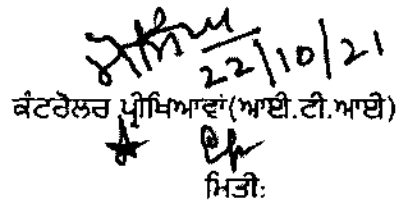 22/10/21
ਕੰਟਰੋਲਰ ਪ੍ਰੀਖਿਆਵਾਂ(ਆਈ.ਟੀ.ਆਈ)
ਮਿਤੀ: